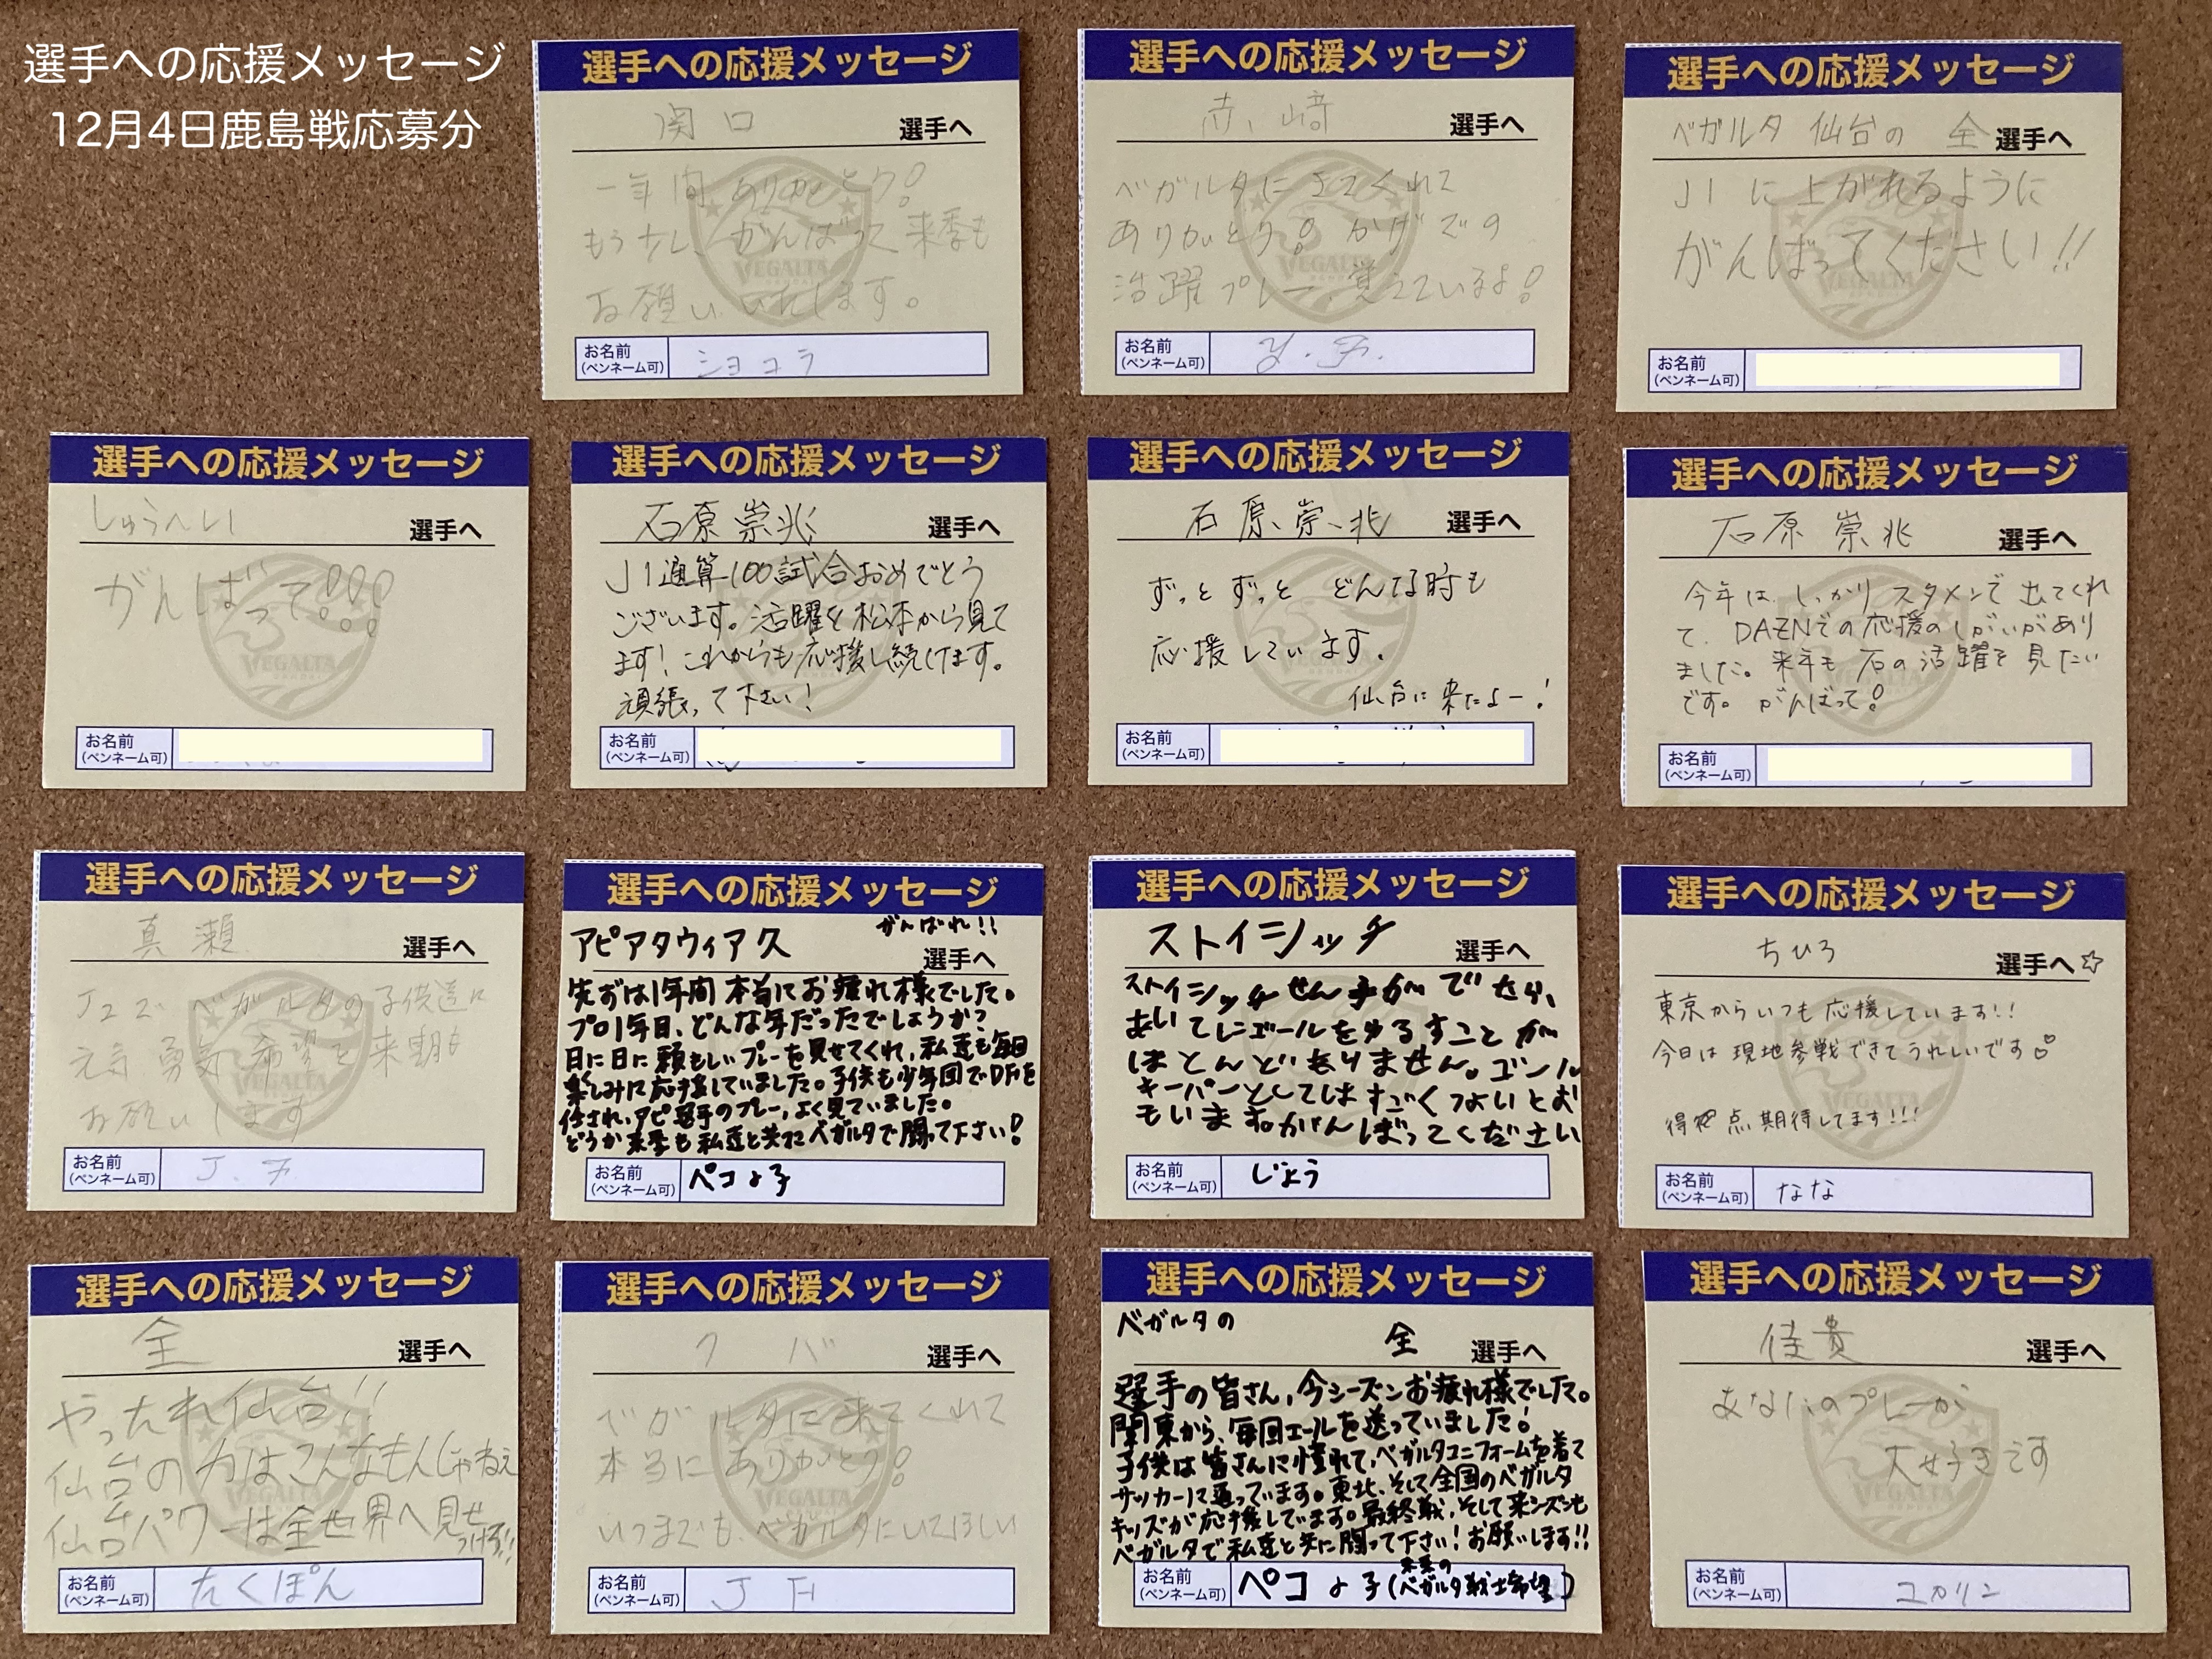 選手への応援メッセージ
12月4日鹿島戦応募分
選手への応援メッセージ
関口 選手へ
一年間ありがとう!
もう少しがんばって来季も
お願いいたします。
お名前
(ペンネーム可)
ショコラ
選手への応援メッセージ
赤﨑 選手へ
ベガルタにきてくれて
ありがとう! かげでの
活躍プレー覚えているよ!
お名前
(ペンネーム可)
Y.F.
選手への応援メッセージ
ベガルタ仙台の 全 選手へ
J1に上がれるように
がんばってください!!
お名前
(ペンネーム可)
選手への応援メッセージ
しゅうへい 選手へ
がんばって!!!
お名前
(ペンネーム可)
選手への応援メッセージ
石原崇兆 選手へ
J1通算100試合おめでとう
ございます。活躍を松本から見て
ます!これからも応援し続けます。
頑張って下さい!
お名前
(ペンネーム可)
選手への応援メッセージ
石原崇兆 選手へ
ずっとずっと どんな時も
応援しています。
仙台に来たよー!
お名前
(ペンネーム可)
選手への応援メッセージ
石原崇兆 選手へ
今年は、しっかりスタメンで出てくれ
て、DAZNでの応援のしがいがあり
ました。来年も石の活躍を見たい
です。がんばって!
お名前
(ペンネーム可)
選手への応援メッセージ
真瀬 選手へ
J2でベガルタの子供達に
元気 勇気 希望を来期も
お願いします
お名前
(ペンネーム可)
J.F.
選手への応援メッセージ
がんばれ!!
アピアタウィア久 選手へ
先ずは1年間本当にお疲れ様でした。
プロ1年目、どんな年だったでしょうか?
日に日に頼もしいプレーを見せてくれ、私達も毎回
楽しみに応援していました。子供も少年団でDFを
任され、アピ選手のプレー、よく見ていました。
どうか来季も私達と共にベガルタで闘って下さい!
お名前
(ペンネーム可)
ペコよ子
選手への応援メッセージ
ストイシッチ 選手へ
ストイシッチせん手がでたら、
あいてにゴールをゆるすことが
ほとんどありません。ゴール
キーパーとしてはすごくつよいとお
もいます。がんばってください
お名前
(ペンネーム可)
じょう
選手への応援メッセージ
ちひろ 選手へ☆
東京からいつも応援しています!!
今日は現地参戦できてうれしいです♡
得点期待してます!!!
お名前
(ペンネーム可)
なな
選手への応援メッセージ
全 選手へ
やったれ仙台!!
仙台の力はこんなもんじゃねえ
仙台パワーは全世界へ見せ
つけろ!!
お名前
(ペンネーム可)
たくぽん
選手への応援メッセージ
クバ 選手へ
ベガルタに来てくれて
本当にありがとう!
いつまでも、ベガルタにいてほしい
お名前
(ペンネーム可)
J F
選手への応援メッセージ
ベガルタの
全 選手へ
選手の皆さん、今シーズンお疲れ様でした。
関東から、毎回エールを送っていました!
子供は皆さんに憧れて、ベガルタユニフォームを着て
サッカーに通っています。東北、そして全国のベガルタ
キッズが応援しています。最終戦、そして来シーズンも
ベガルタで私達と共に闘って下さい!お願いします!!
お名前
(ペンネーム可)
ペコよ子(未来のベガルタ戦士希望)
選手への応援メッセージ
佳貴 選手へ
あなたのプレーが
大好きです
お名前
(ペンネーム可)
ユカリン
VEGALTA